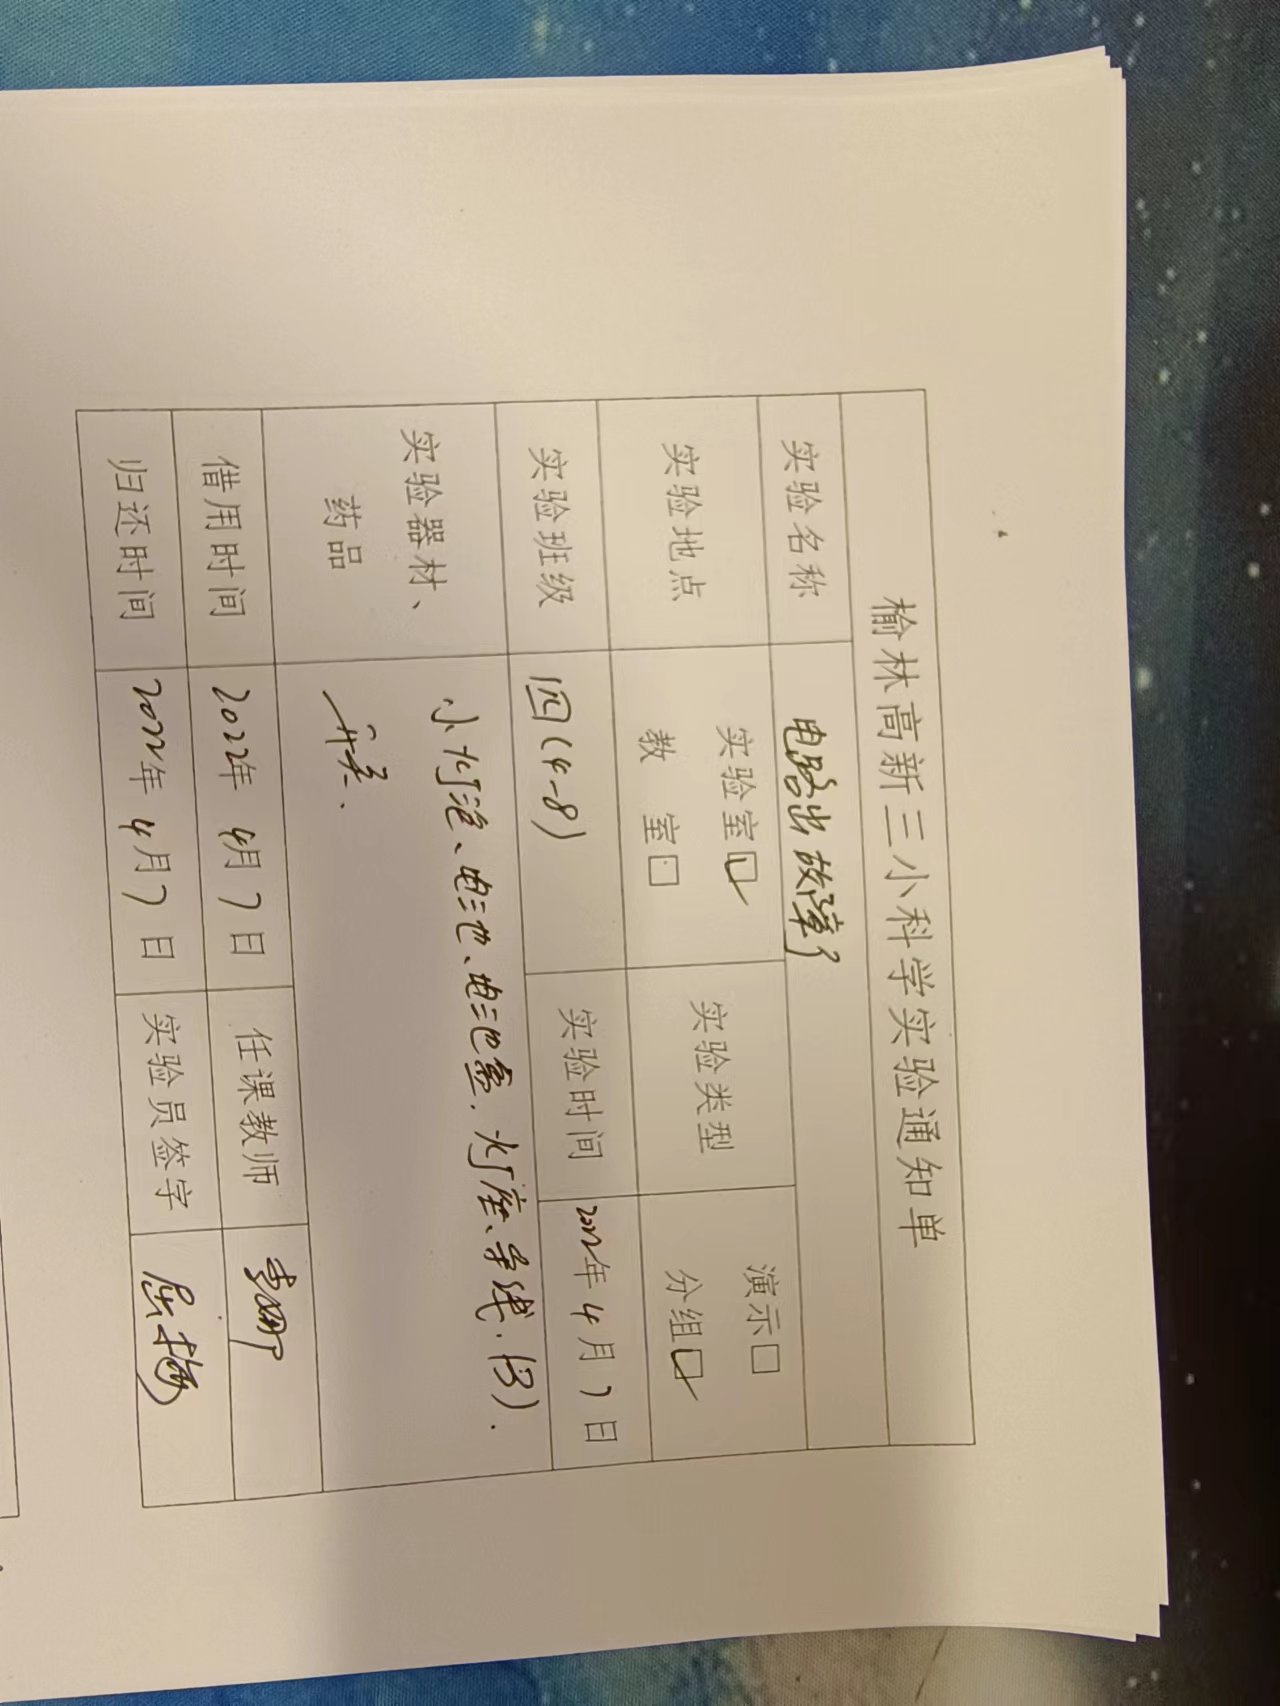 榆林高新三小科学实验通知单
实验名称 电路出故障了
实验地点 实验室☑ 教 室□ 实验类型 演示□ 分组☑
实验班级 四(4-8) 实验时间 2022年4月7日
实验器材、药品 小灯泡、电池、电池盒、灯座、导线、(3).
开关、
借用时间 2022年4月7日 任课教师
归还时间 2022年4月7日 实验员签字 屈梅